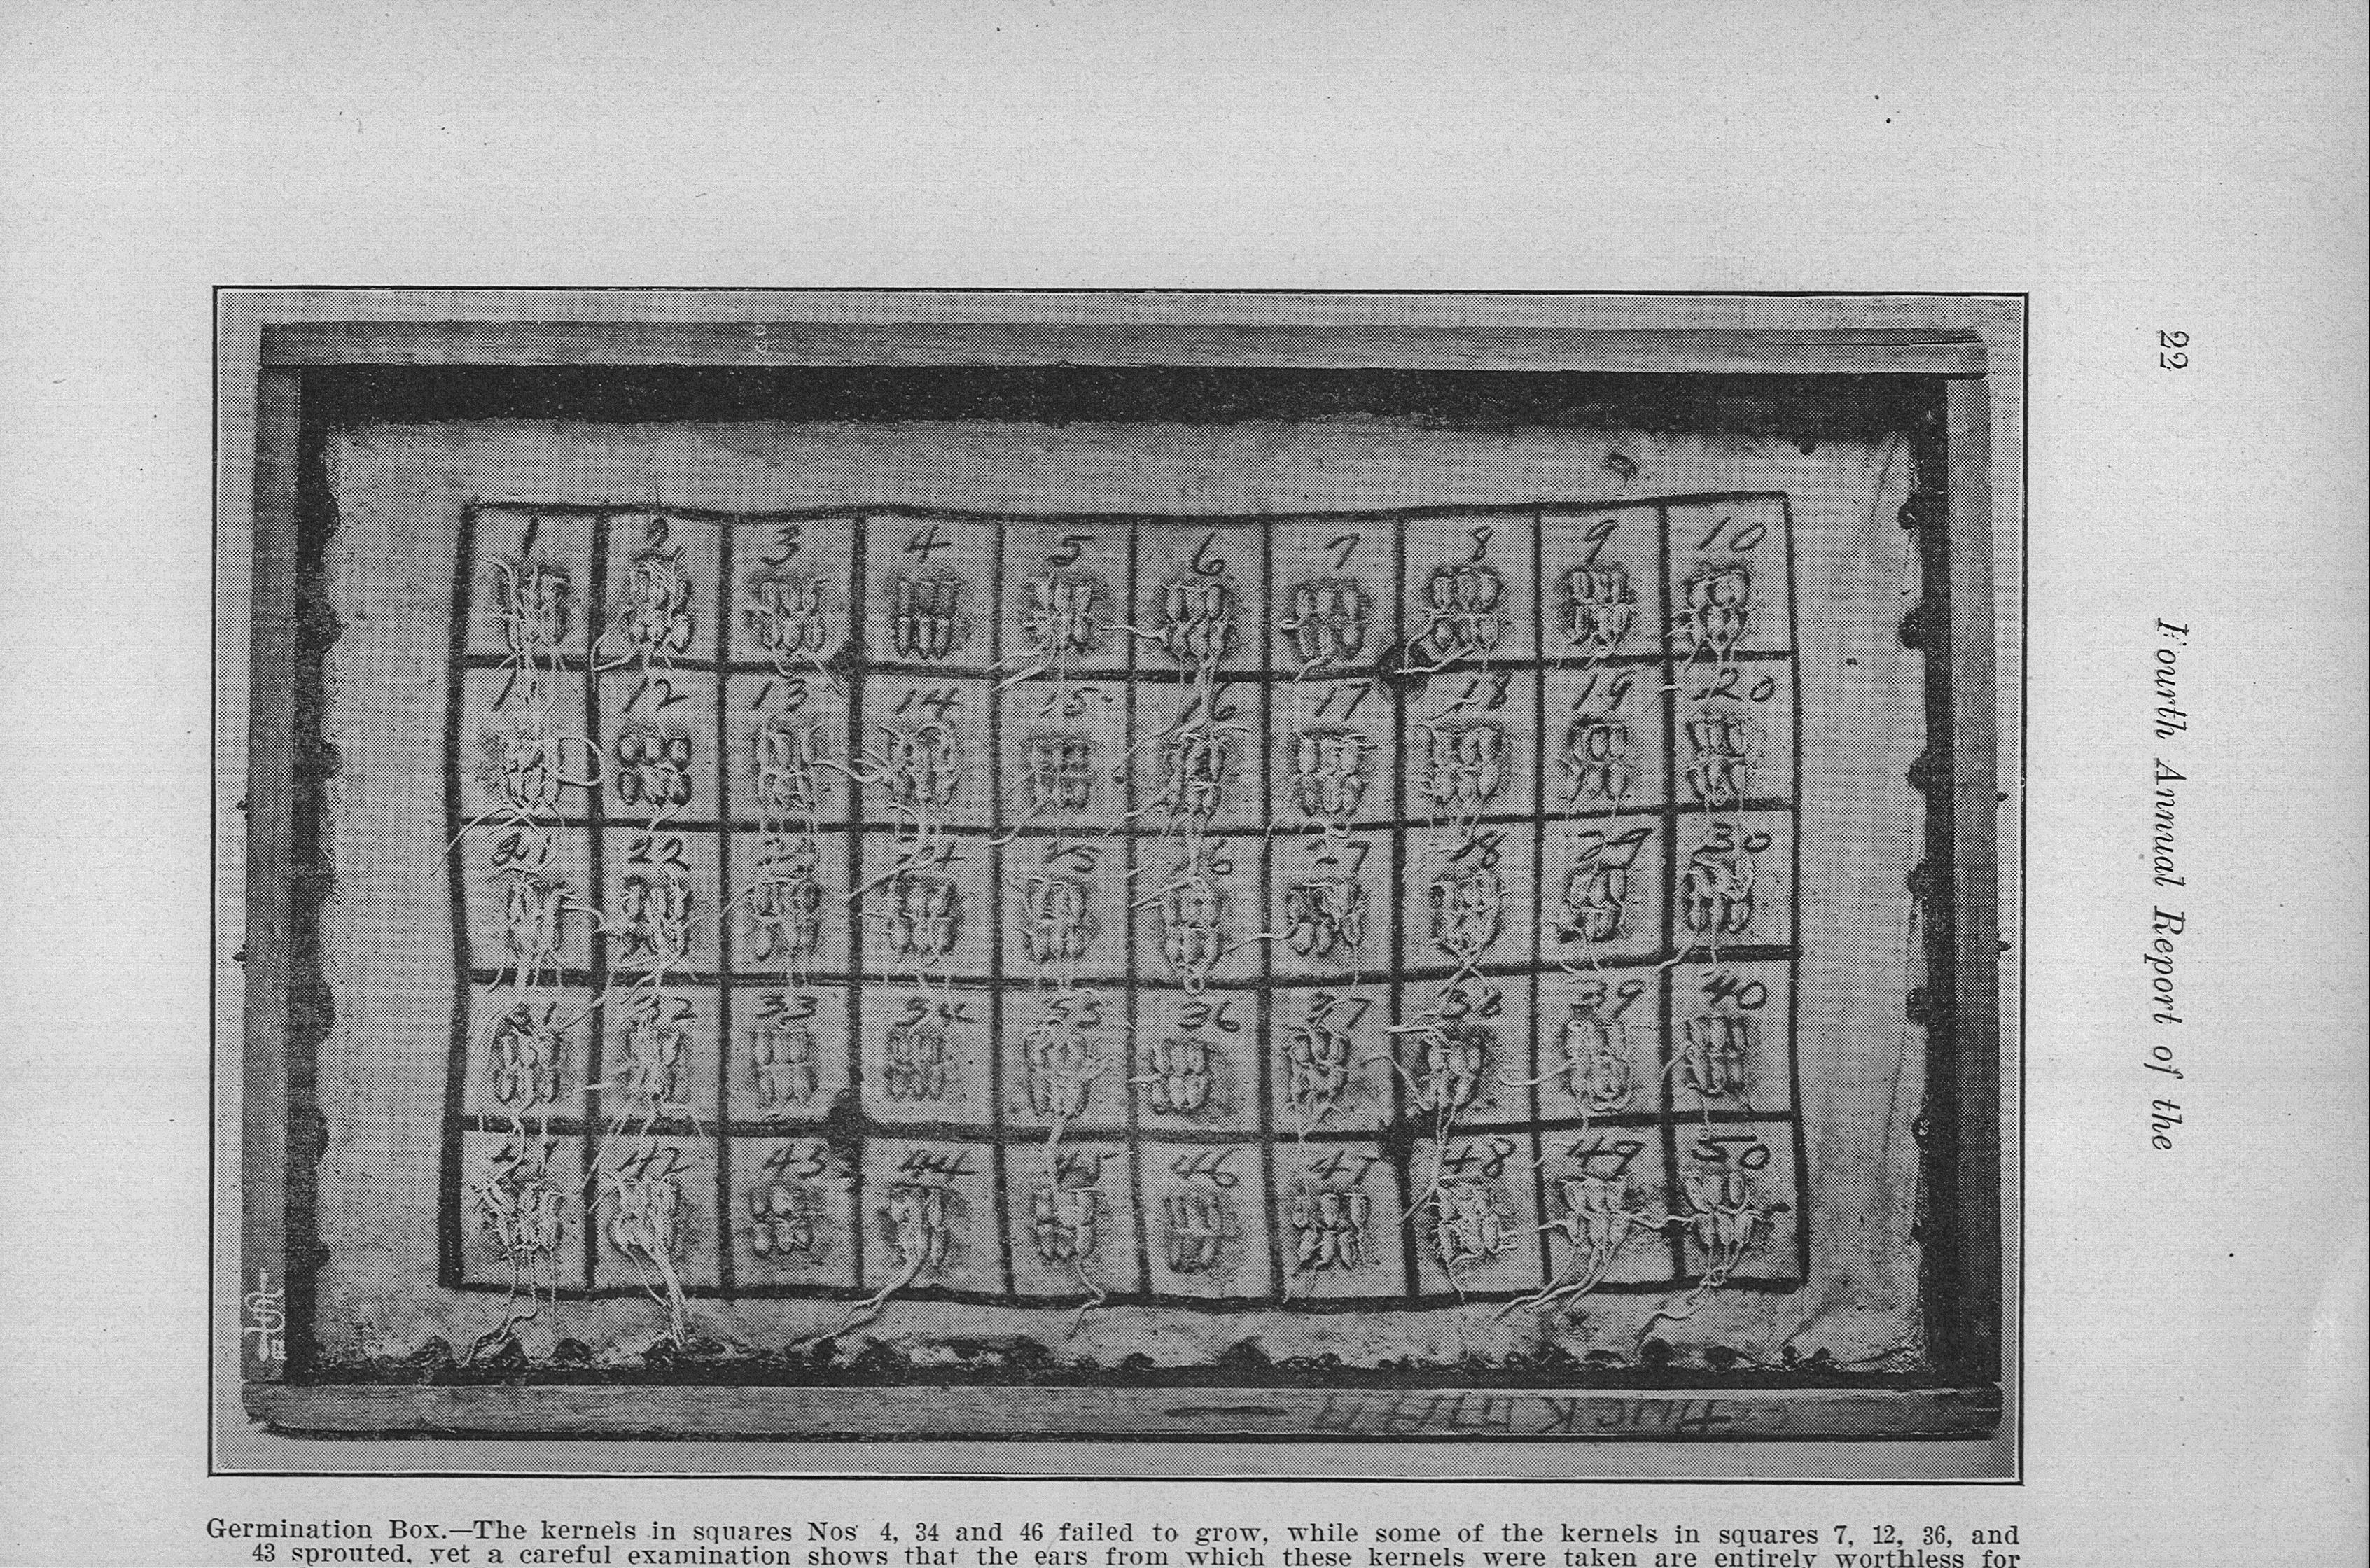 22
Fourth Annual Report of the
1 2 3 4 5 6 7 8 9 10
1 12 13 14 15 16 17 18 19 20
21 22 15 6 7 18 29 30
31 32 33 34 35 36 37 38 39 40
41 42 43 44 45 46 47 48 49 50
Germination Box.—The kernels in squares Nos 4, 34 and 46 failed to grow, while some of the kernels in squares 7, 12, 36, and
43 sprouted, yet a careful examination shows that the ears from which these kernels were taken are entirely worthless for